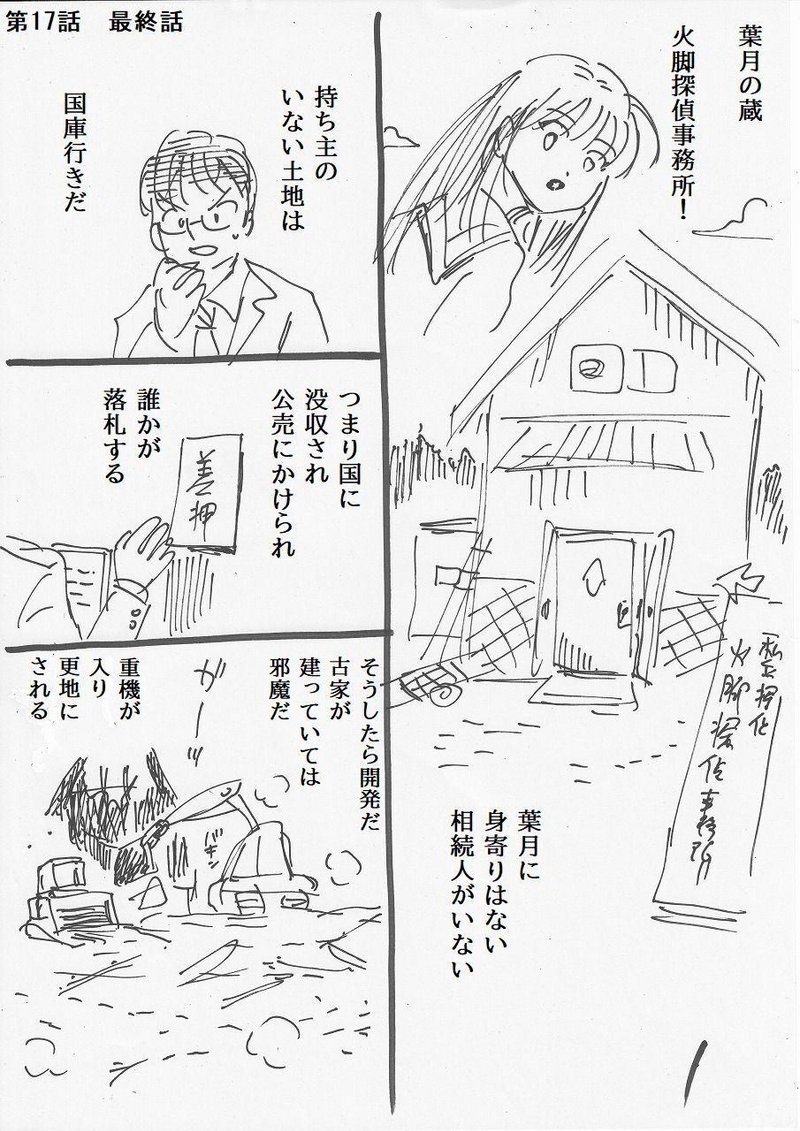 第17話 最終話
葉月の蔵
火脚探偵事務所！
葉月に
身寄りはない
相続人がいない
持ち主の
いない土地は
国庫行きだ
つまり国に
没収され
公売にかけられ
誰かが
落札する
差押
そうしたら開発だ
古家が
建っていては
邪魔だ
ガーッ
バキン
重機が
入り
更地に
される
火脚探偵事務所